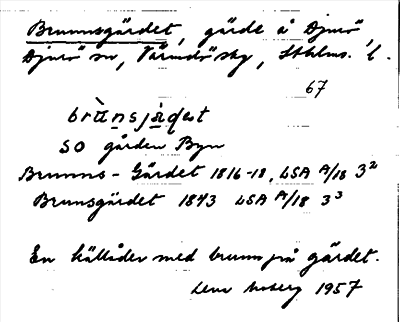 Brunnsgärdet, gärde å Djurö,
Djurö sn, Värmdö skg, Sthlms. l.
67
brùnsjä̀ḍət
SO gården Byn
Brunns-Gärdet 1816-18, LSA A/18 3²
Brunsgärdet 1843 LSA A/18 3³
En källåder med brunn på gärdet.
Moberg 1957